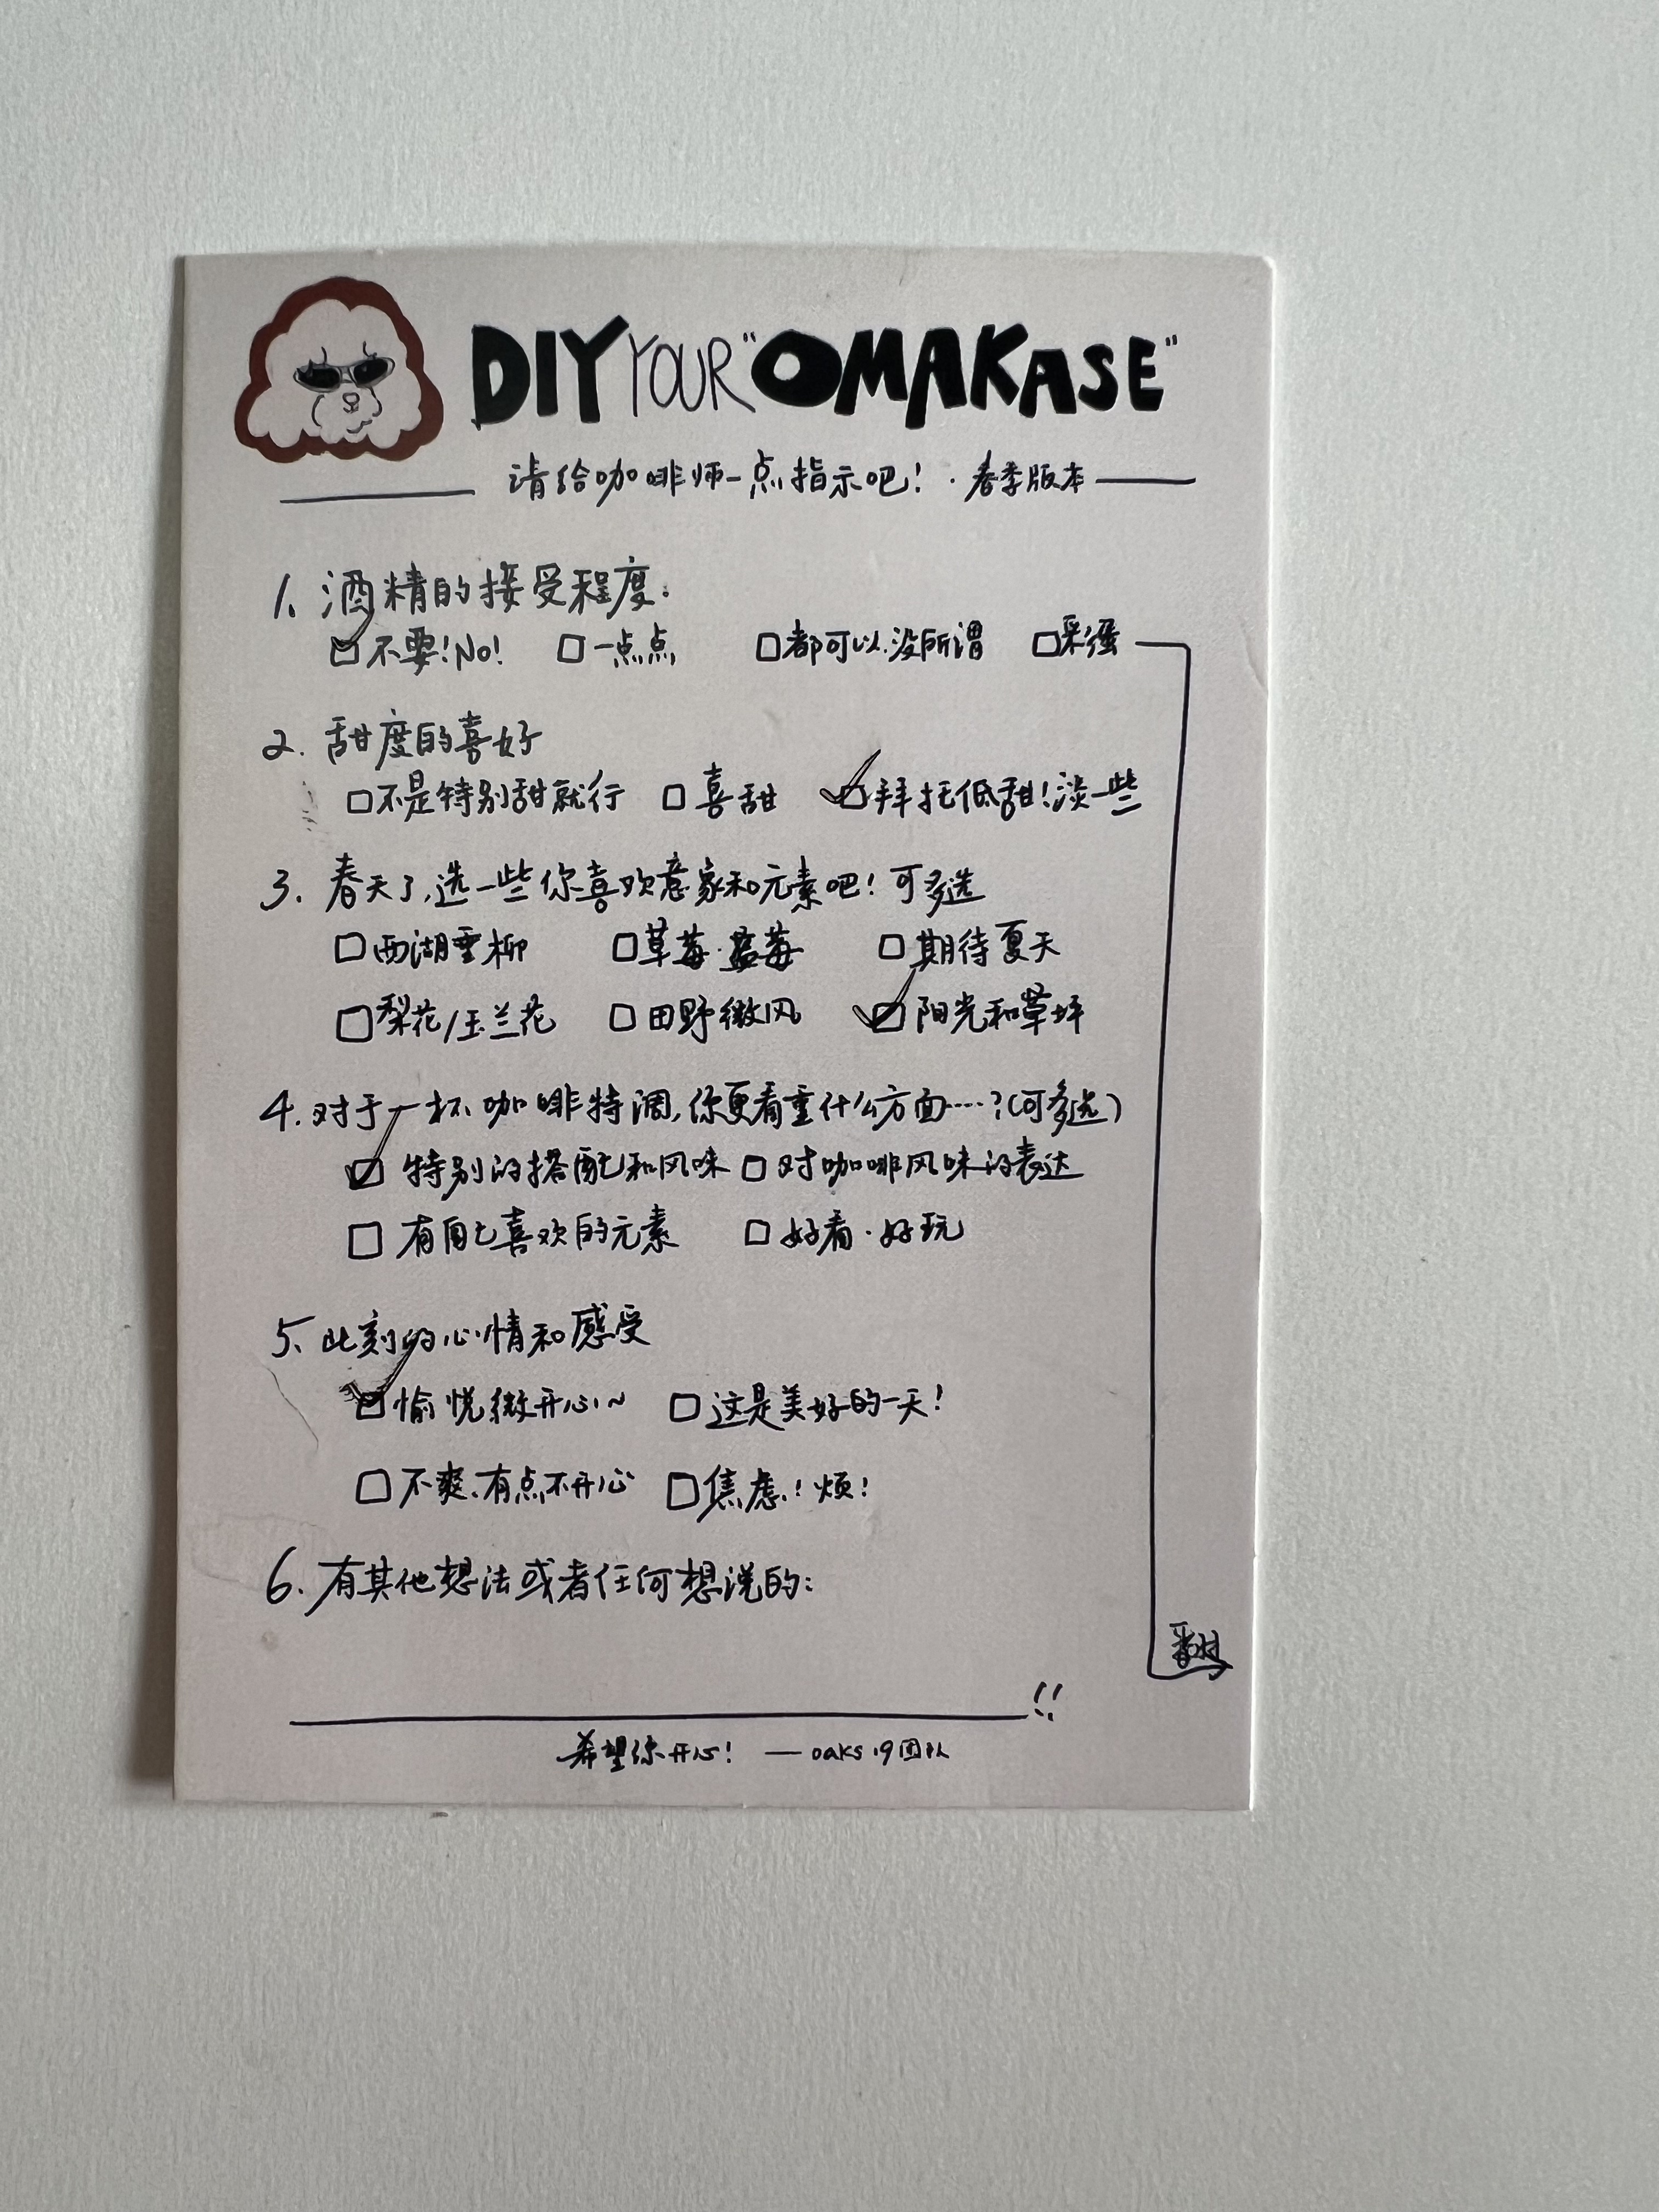 DIY YOUR "OMAKASE"
请给咖啡师一点指示吧！·春季版本
1、酒精的接受程度：
☑不要！No！ □一点点 □都可以、没所谓 □来强
2. 甜度的喜好
□不是特别甜就行 □喜甜 ☑拜托低甜！淡一些
3. 春天了，选一些你喜欢意象和元素吧！可多选
□西湖垂柳 □草莓·蓝莓 □期待夏天
□梨花/玉兰花 □田野微风 ☑阳光和草坪
4. 对于一杯咖啡特调，你更看重什么方面····？(可多选)
☑特别的搭配和风味 □对咖啡风味的表达
□有自己喜欢的元素 □好看·好玩
5、此刻的心情和感受
☑愉悦微开心~ □这是美好的一天！
□不爽、有点不开心 □焦虑！烦！
6. 有其他想法或者任何想说的：
翻
!!
希望你开心！ — oaks 19团队